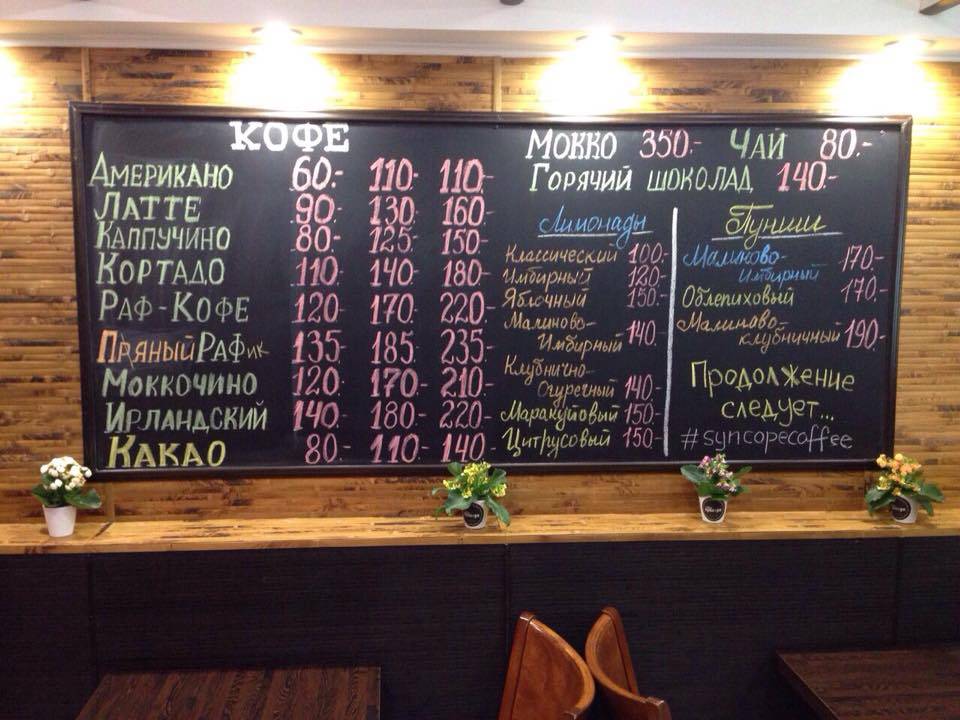 КОФЕ
АМЕРИКАНО 60.- 110- 110.-
ЛАТТЕ 90.- 130- 160.-
КАППУЧИНО 80.- 125- 150.-
КОРТАДО 110.- 140- 180.-
РАФ-КОФЕ 120.- 170- 220.-
ПРЯНЫЙ РАФик 135.- 185 235.-
МОККОЧИНО 120.- 170.- 210.-
ИРЛАНДСКИЙ 140.- 180.- 220.-
КАКАО 80.- 110- 140.-
МОККО 350.- ЧАЙ 80.-
ГОРЯЧИЙ ШОКОЛАД 140.-
Лимонады
Классический 100.-
Имбирный 120.-
Яблочный 150.-
Малиново-
Имбирный 140.-
Клубнично-
Огуречный 140.-
Маракуйовый 150.-
Цитрусовый 150.-
Пунши
Малиново-
Имбирный 170.-
Облепиховый 170.-
Малиново-
клубничный 190.-
Продолжение
следует...
#syncopecoffee